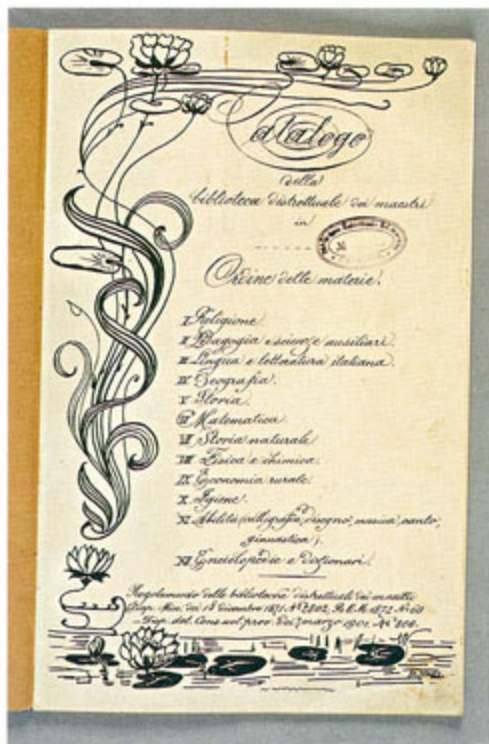 Catalogo
della
biblioteca distrettuale dei maestri
in
Ordine delle materie.
I Religione.
II Pedagogia e scienze ausiliari.
III Lingua e letteratura italiana.
IV Geografia.
V Storia.
VI Matematica.
VII Storia naturale
VIII Fisica e chimica.
IX Economia rurale.
X Igiene.
XI Abilità (calligrafia, disegno, musica, canto,
ginnastica).
XII Enciclopedie e dizionari.
Regolamento delle biblioteche distrettuali dei maestri
Disp. Min. dei 15 dicembre 1871 No 2802, B.L.M. 1872 No
Disp. del. Cons. scol. prov. dei marzo 1901, No